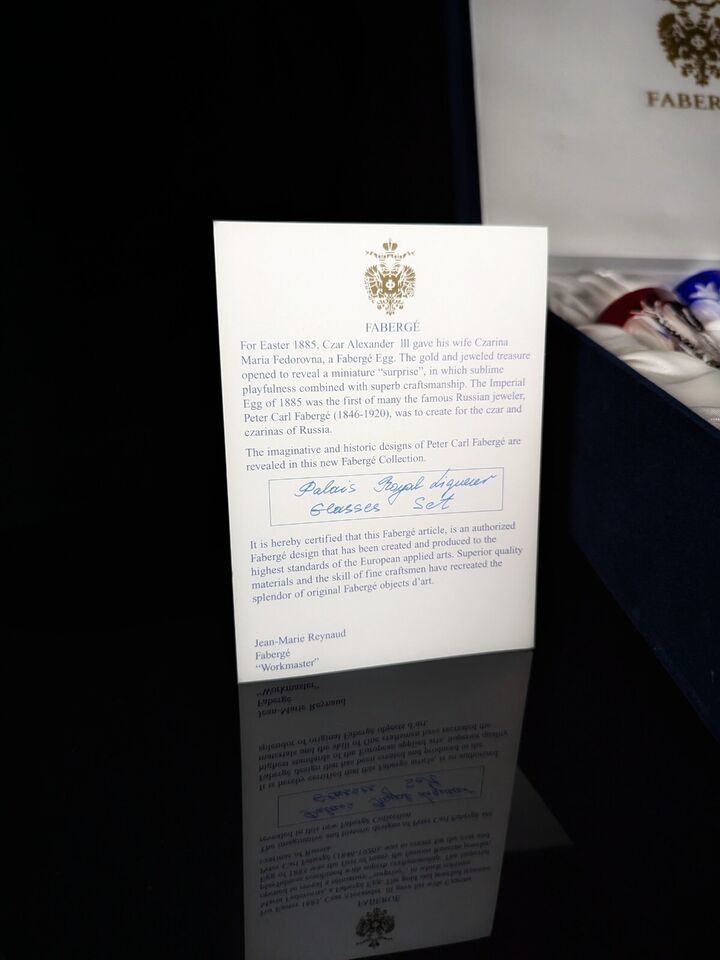 FABER
FABERGÉ
For Easter 1885, Czar Alexander III gave his wife Czarina
Maria Fedorovna, a Fabergé Egg. The gold and jeweled treasure
opened to reveal a miniature “surprise”, in which sublime
playfulness combined with superb craftsmanship. The Imperial
Egg of 1885 was the first of many the famous Russian jeweler,
Peter Carl Fabergé (1846-1920), was to create for the czar and
czarinas of Russia.
The imaginative and historic designs of Peter Carl Fabergé are
revealed in this new Fabergé Collection.
Palais Royal Liqueur
Glasses Set
It is hereby certified that this Fabergé article, is an authorized
Fabergé design that has been created and produced to the
highest standards of the European applied arts. Superior quality
materials and the skill of fine craftsmen have recreated the
splendor of original Fabergé objects d’art.
Jean-Marie Reynaud
Fabergé
“Workmaster”